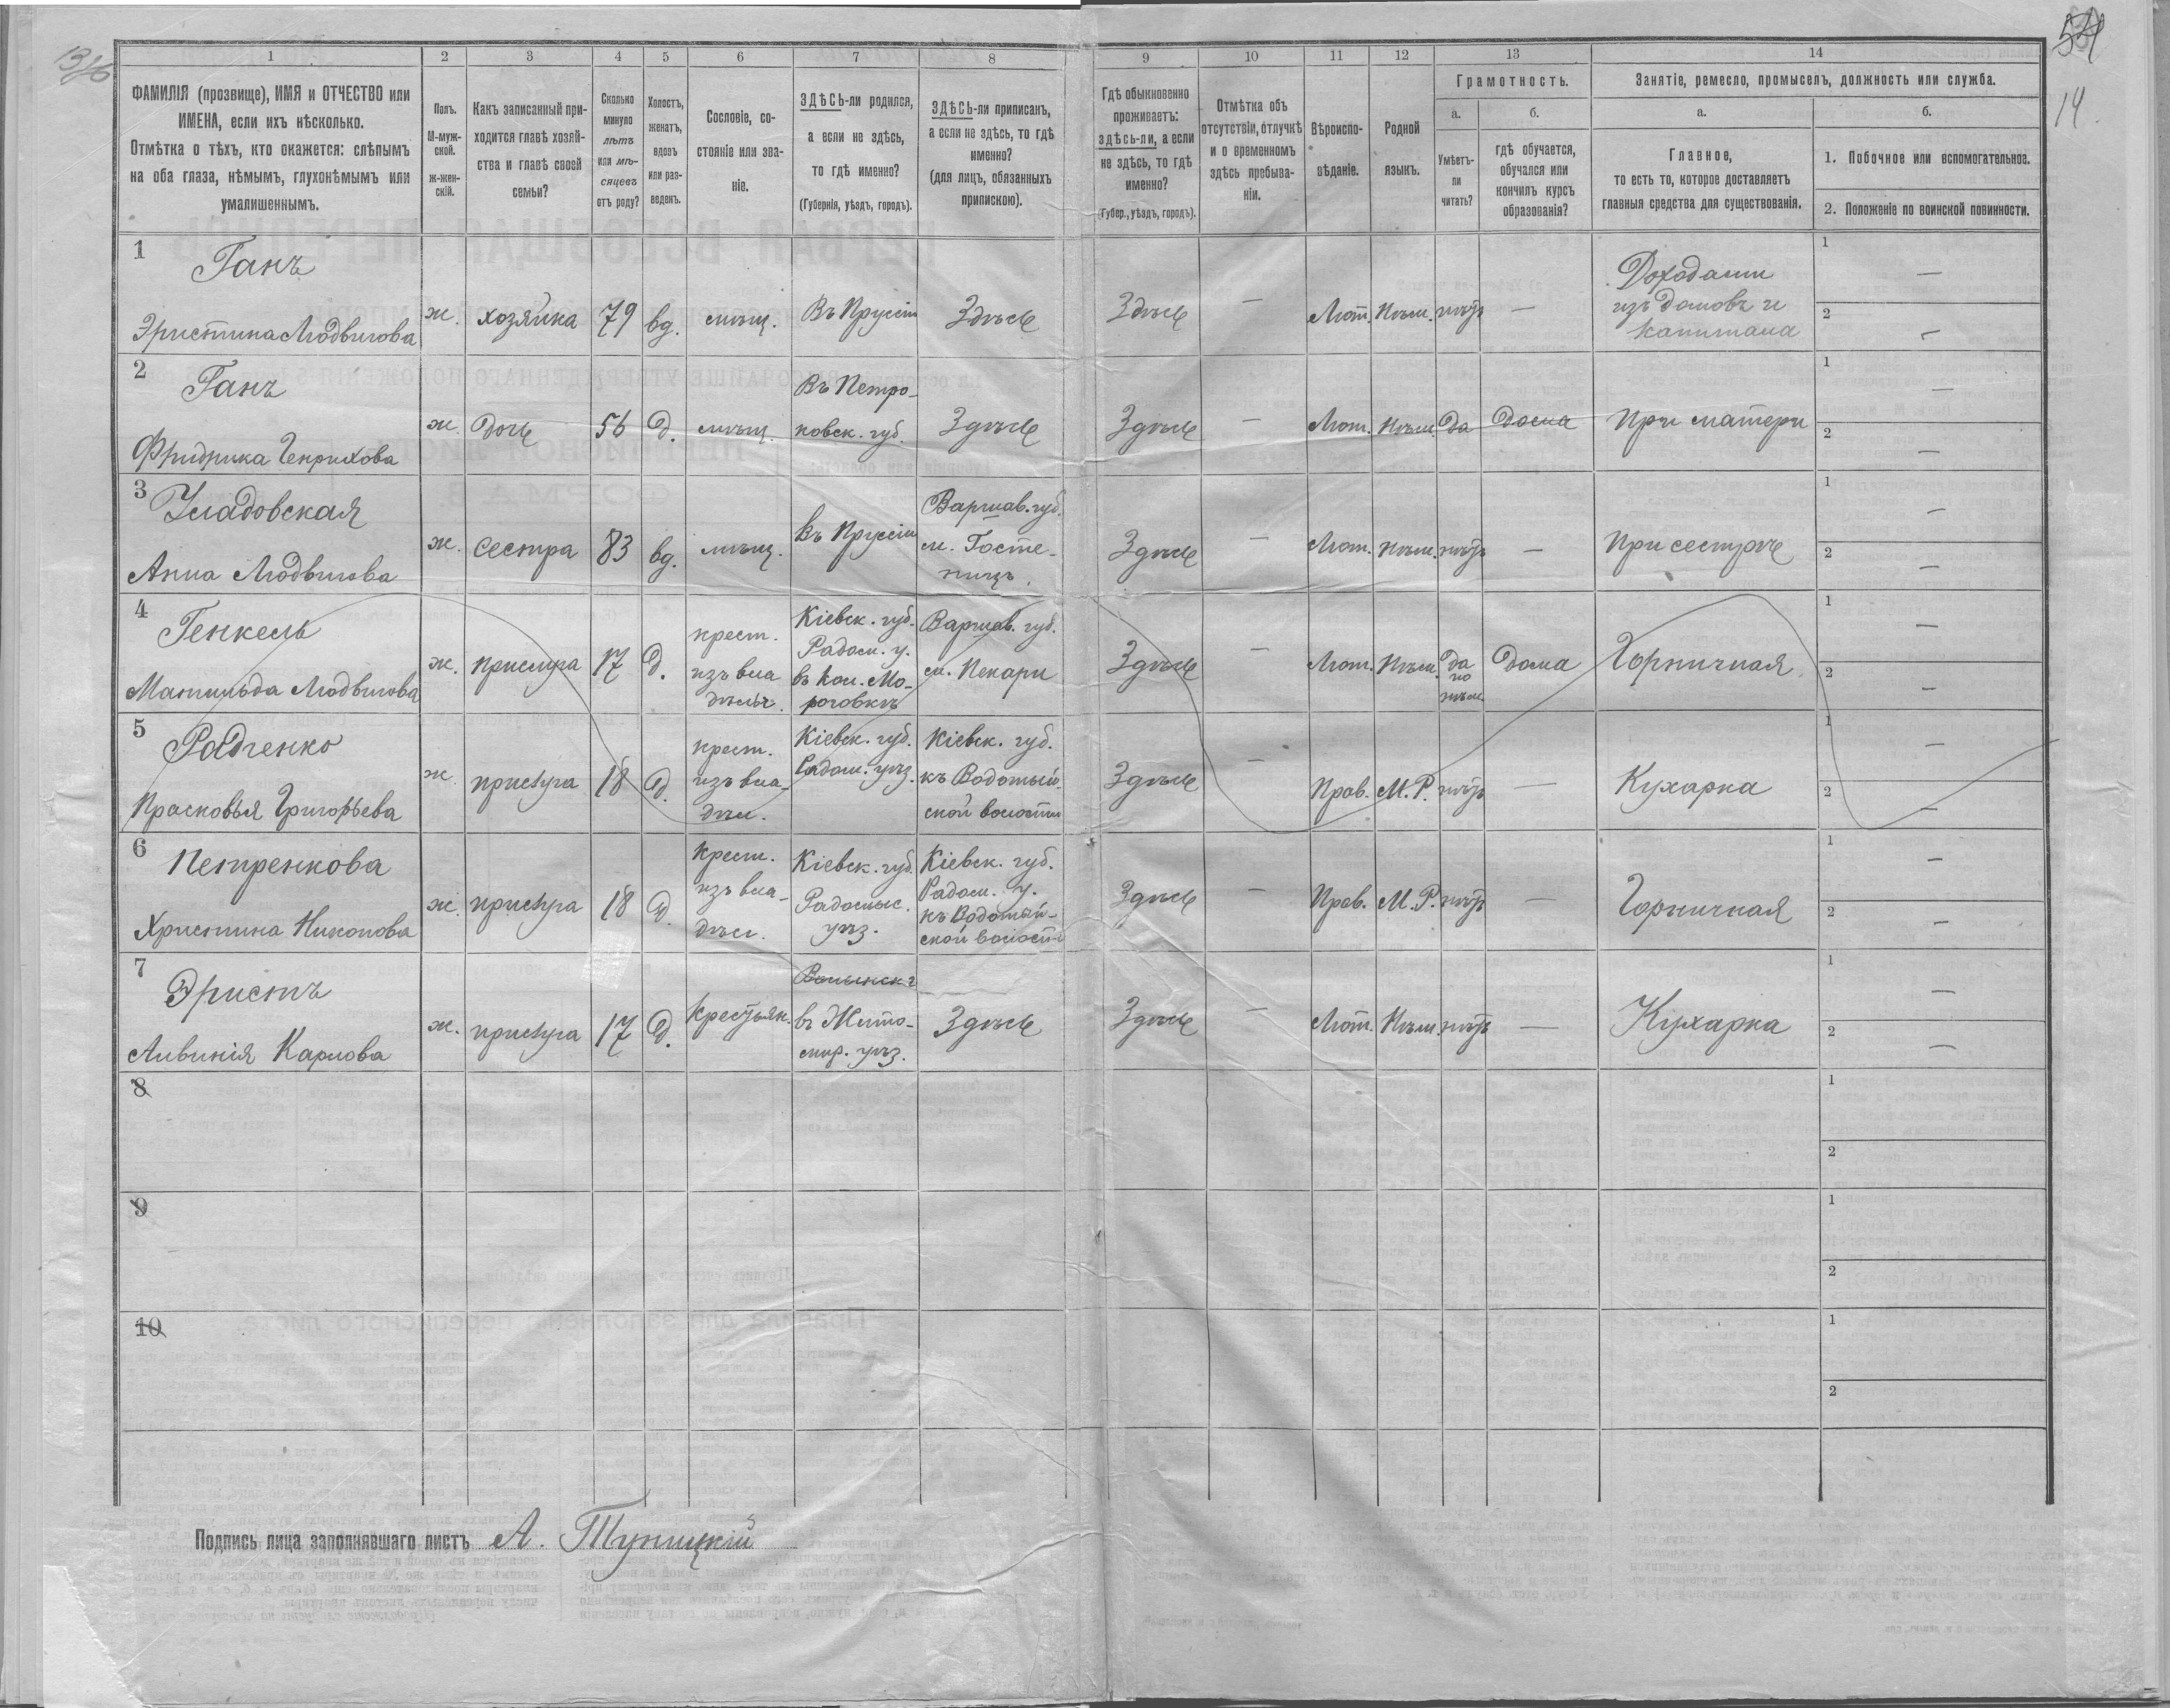 13/16
54
14
1
2
3
4
5
6
7
8
9
10
11
12
13
14
ФАМИЛІЯ (прозвище), ИМЯ и ОТЧЕСТВО или
ИМЕНА, если ихъ нѣсколько.
Отмѣтка о тѣхъ, кто окажется: слѣпымъ
на оба глаза, нѣмымъ, глухонѣмымъ или
умалишеннымъ.
Полъ.
М-муж-
ской.
Ж-жен-
скій.
Какъ записанный при-
ходится главѣ хозяй-
ства и главѣ своей
семьи?
Сколько
минуло
лѣтъ
или мѣ-
сяцевъ
отъ роду?
Холостъ,
женатъ,
вдовъ
или раз-
веденъ.
Сословіе, со-
стояніе или зва-
ніе.
ЗДѢСЬ-ли родился,
а если не здѣсь,
то гдѣ именно?
(Губернія, уѣздъ, городъ).
ЗДѢСЬ-ли приписанъ,
а если не здѣсь, то гдѣ
именно?
(для лицъ, обязанныхъ
припискою).
Гдѣ обыкновенно
проживаетъ:
здѣсь-ли, а если
не здѣсь, то гдѣ
именно?
(Губер., уѣздъ, городъ).
Отмѣтка объ
отсутствіи, отлучкѣ
и о временномъ
здѣсь пребыва-
ніи.
Вѣроиспо-
вѣданіе.
Родной
языкъ.
Грамотность.
а.
Умѣетъ-
ли
читать?
б.
гдѣ обучается,
обучался или
кончилъ курсъ
образованія?
Занятіе, ремесло, промыселъ, должность или служба.
а.
Главное,
то есть то, которое доставляетъ
главныя средства для существованія.
б.
1. Побочное или вспомогательное.
2. Положеніе по воинской повинности.
1
Ганъ
Эрнстина Людвигова
ж.
хозяйка
79
вд.
мѣщ.
Въ Пруссіи
Здѣсь
Здѣсь
—
Лют.
Нѣм.
нѣтъ
—
Доходами
изъ домовъ и
капитала
1
—
2
—
2
Ганъ
Фридрика Генрихова
ж.
дочь
56
д.
мѣщ.
Въ Петро-
ковск. губ.
Здѣсь
Здѣсь
—
Лют.
Нѣм.
да
дома
при матери
1
—
2
—
3
Анна Людвигова
ж.
сестра
83
вд.
мѣщ.
въ Пруссіи
Варшав. губ.
м. Госте-
Здѣсь
—
Лют.
Нѣм.
нѣтъ
—
при сестрѣ
1
—
2
—
4
Генкель
Матильда Людвигова
ж.
прислуга
17
д.
крест.
изъ вла
дѣльч.
Кіевск. губ.
Радом. у.
въ кол. Мо-
роговкѣ
Варшав. губ.
м. Пекари
Здѣсь
—
Лют.
Нѣм.
да
по
нѣм.
дома
Горничная
1
—
2
—
5
Радченко
Прасковья Григорьева
ж.
прислуга
18
д.
крест.
изъ вла-
дѣл.
Кіевск. губ.
Радом. уѣз.
Кіевск. губ.
къ Водотый-
ской волости
Здѣсь
—
Прав.
М. Р.
нѣтъ
—
Кухарка
1
—
2
—
6
Петренкова
Христина Никонова
ж.
прислуга
18
д.
Крест.
изъ вла-
дѣл.
Кіевск. губ.
Радомыс.
уѣз.
Кіевск. губ.
Радом. у.
къ Водотый-
ской волости
Здѣсь
—
Прав.
М. Р.
нѣтъ
—
Горничная
1
—
2
—
7
Эрнстъ
Ливинія Карлова
ж.
прислуга
17
д.
Крестьян.
Волынск г
въ Жито-
мир. уѣз.
Здѣсь
Здѣсь
—
Лют.
Нѣм.
нѣтъ
—
Кухарка
1
—
2
—
8
1
2
9
1
2
10
1
2
Подпись лица заполнявшаго листъ А. Туницкій